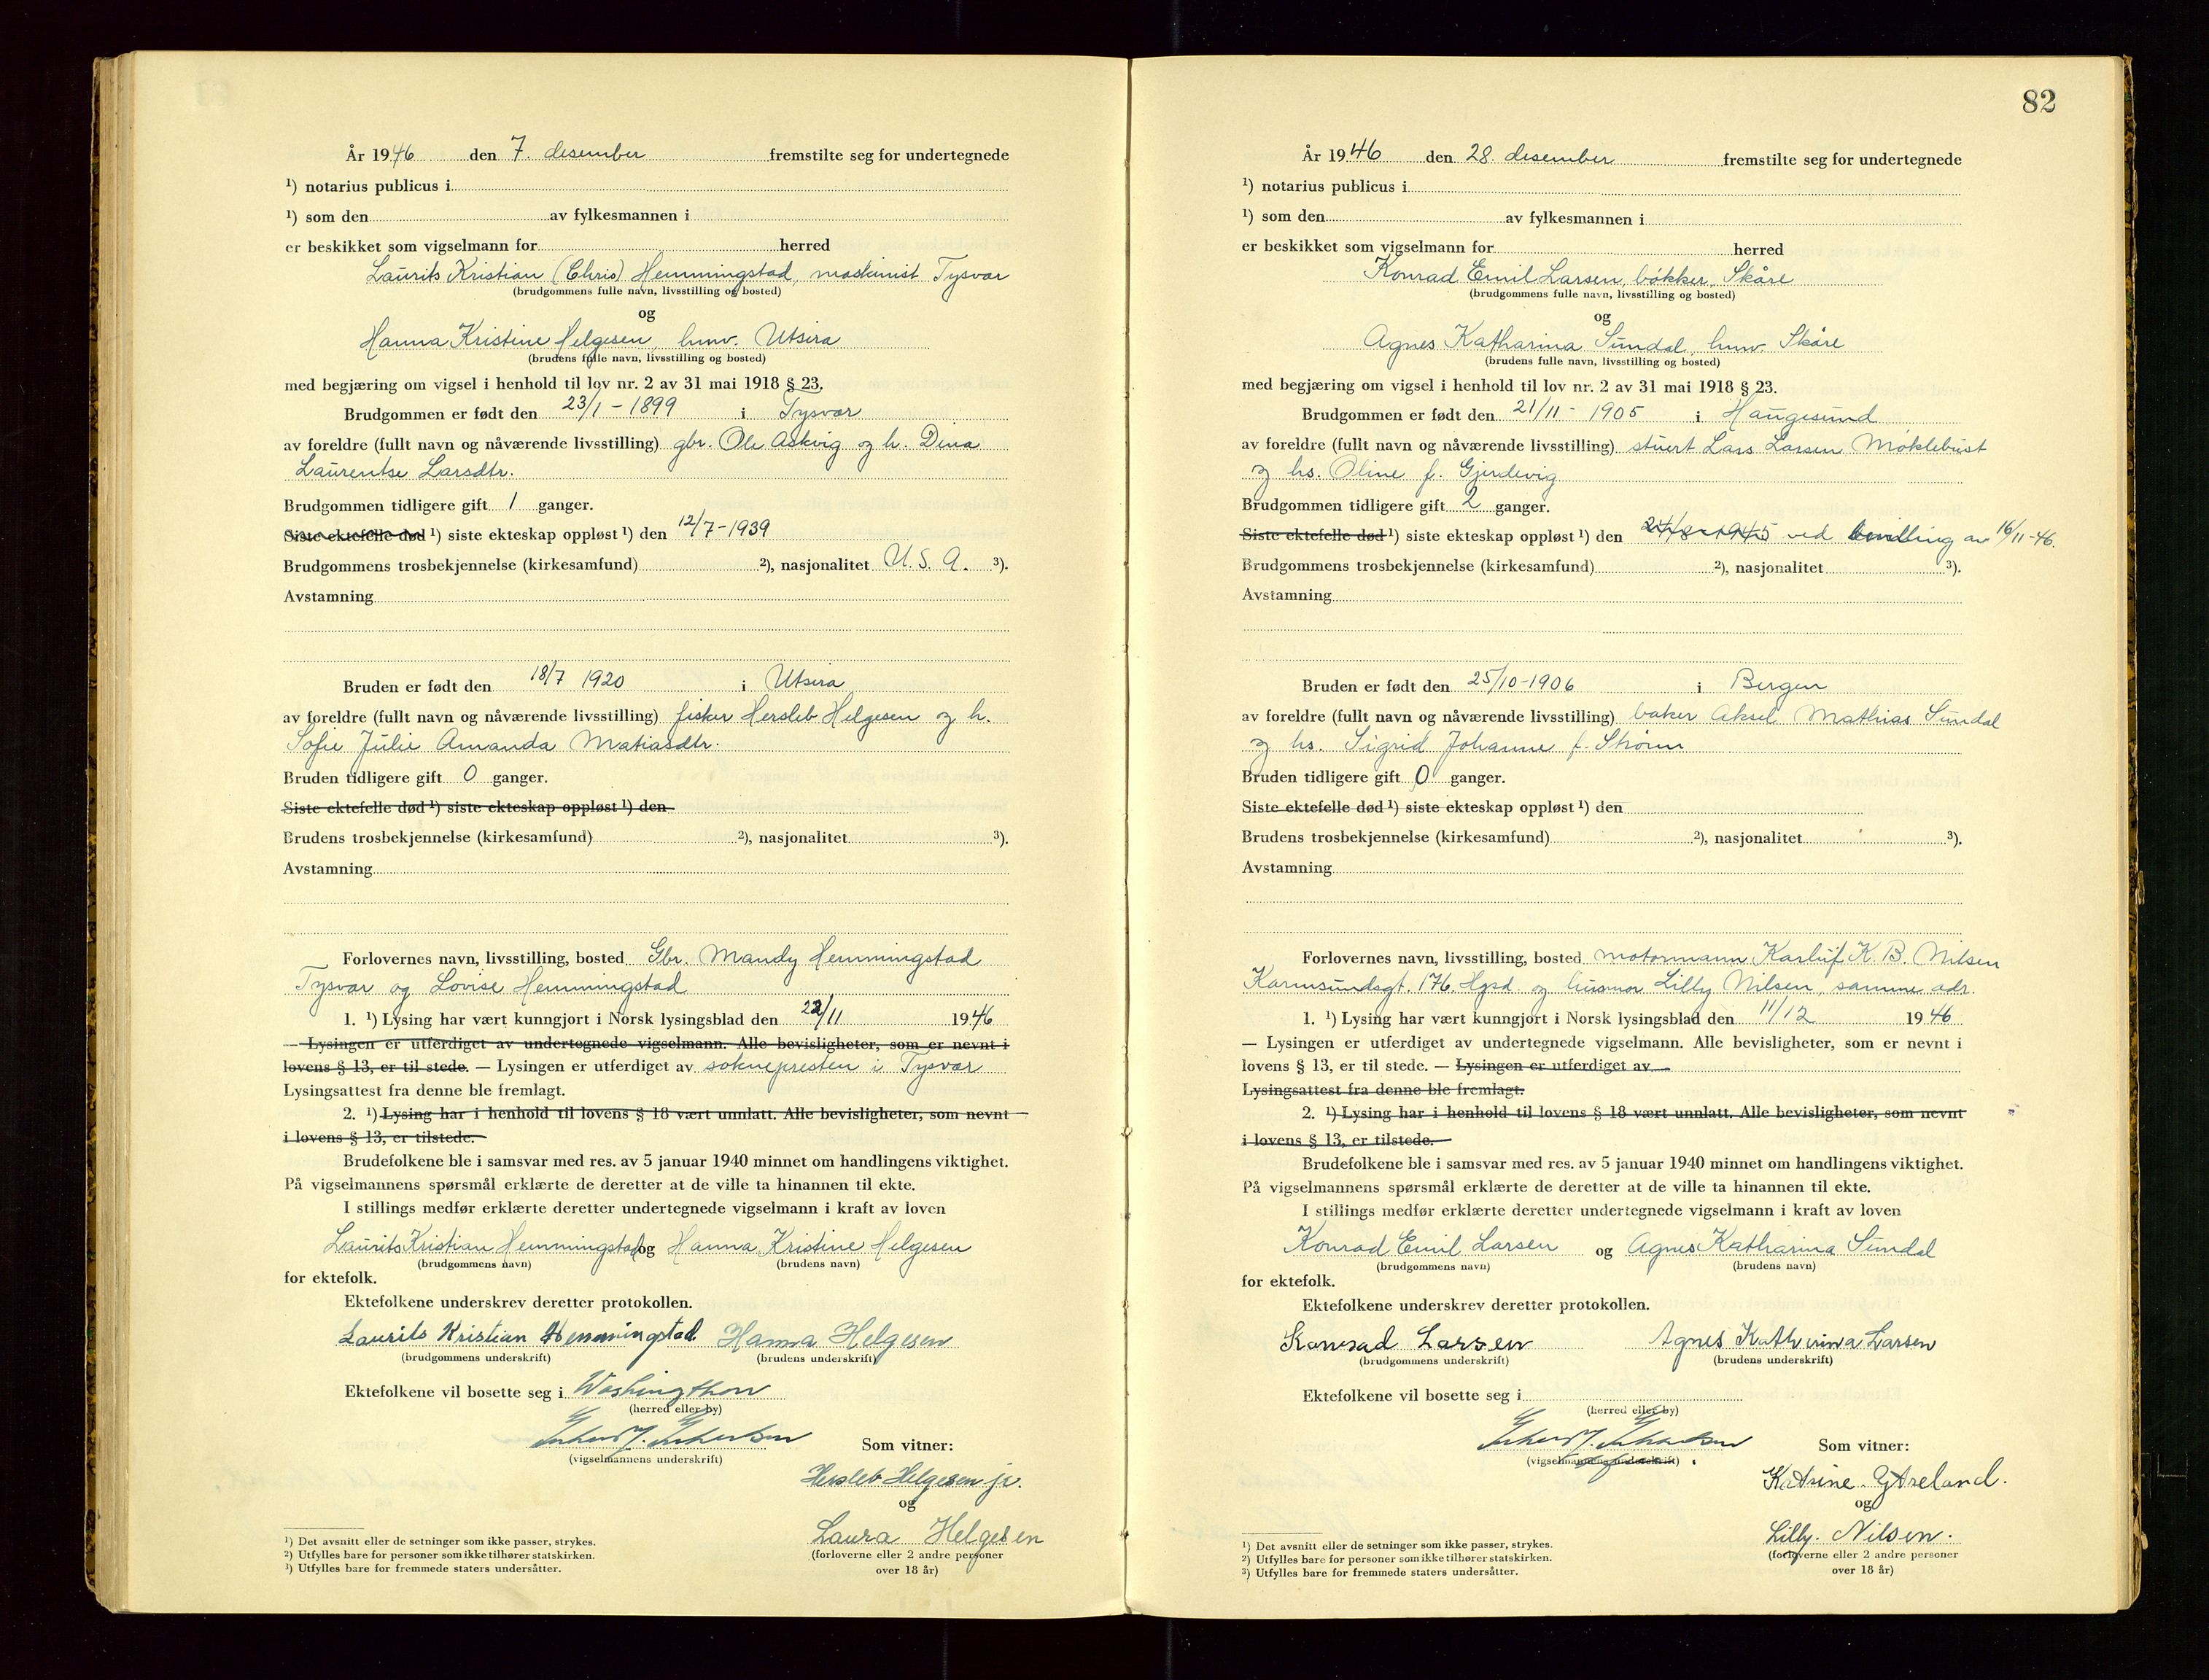 År 1946 den 7. desember fremstilte seg for undertegnede
¹) notarius publicus i
¹) som den av fylkesmannen i
er beskikket som vigselmann for herred
Laurits Kristian (Chris) Hemmingstad, maskinist Tysvar
(brudgommens fulle navn, livsstilling og bosted)
og
Hanna Kristine Helgesen, husv. Utsira
(brudens fulle navn, livsstilling og bosted)
med begjæring om vigsel i henhold til lov nr. 2 av 31 mai 1918 § 23.
Brudgommen er født den 23/1 - 1899 i Tysvar
av foreldre (fullt navn og nåværende livsstilling) gbr. Ole Askvig og h. Dina
Laurentse Larsdtr.
Brudgommen tidligere gift 1 ganger.
Siste ektefelle død ¹) siste ekteskap oppløst ¹) den 12/7-1939
Brudgommens trosbekjennelse (kirkesamfund) ²), nasjonalitet U.S.A. ³).
Avstamning
Bruden er født den 18/7 1920 i Utsira
av foreldre (fullt navn og nåværende livsstilling) fisker Hersleb Helgesen og h.
Sofie Julie Amanda Matiasdtr.
Bruden tidligere gift 0 ganger.
Siste ektefelle død ¹) siste ekteskap oppløst ¹) den
Brudens trosbekjennelse (kirkesamfund) ²), nasjonalitet ³).
Avstamning
Forlovernes navn, livsstilling, bosted Gbr. Mandy Hemmingstad
Tysvar og Lovise Hemmingstad
1. ¹) Lysing har vært kunngjort i Norsk lysingsblad den 22/11 1946
— Lysingen er utferdiget av undertegnede vigselmann. Alle bevisligheter, som er nevnt i
lovens § 13, er til stede. — Lysingen er utferdiget av soknepresten i Tysvar
Lysingsattest fra denne ble fremlagt.
2. ¹) Lysing har i henhold til lovens § 18 vært unnlatt. Alle bevisligheter, som nevnt
i lovens § 13, er tilstede.
Brudefolkene ble i samsvar med res. av 5 januar 1940 minnet om handlingens viktighet.
På vigselmannens spørsmål erklærte de deretter at de ville ta hinannen til ekte.
I stillings medfør erklærte deretter undertegnede vigselmann i kraft av loven
Laurits Kristian Hemmingstad og Hanna Kristine Helgesen
(brudgommens navn) (brudens navn)
for ektefolk.
Ektefolkene underskrev deretter protokollen.
Laurits Kristian Hemmingstad Hanna Helgesen
(brudgommens underskrift) (brudens underskrift)
Ektefolkene vil bosette seg i Washingthon
(herred eller by)
Som vitner:
(vigselmannens underskrift)
Hersleb Helgesen jr.
og
Laura Helgesen
(forloverne eller 2 andre personer
over 18 år)
¹) Det avsnitt eller de setninger som ikke passer, strykes.
²) Utfylles bare for personer som ikke tilhører statskirken.
³) Utfylles bare for fremmede staters undersåtter.
82
År 1946 den 28. desember fremstilte seg for undertegnede
¹) notarius publicus i
¹) som den av fylkesmannen i
er beskikket som vigselmann for herred
Konrad Emil Larsen, bøkker, Skåre
(brudgommens fulle navn, livsstilling og bosted)
og
Agnes Katharina Sundal, husv. Skåre
(brudens fulle navn, livsstilling og bosted)
med begjæring om vigsel i henhold til lov nr. 2 av 31 mai 1918 § 23.
Brudgommen er født den 21/11 - 1905 i Haugesund
av foreldre (fullt navn og nåværende livsstilling) stuert Lars Larsen Møklebust
og hs. Oline f. Gjerdevig
Brudgommen tidligere gift 2 ganger.
Siste ektefelle død ¹) siste ekteskap oppløst ¹) den ved bevilling av 16/11-46.
Brudgommens trosbekjennelse (kirkesamfund) ²), nasjonalitet ³).
Avstamning
Bruden er født den 25/10-1906 i Bergen
av foreldre (fullt navn og nåværende livsstilling) baker Aksel Mathias Sundal
og hs. Sigrid Johanne f. Strøm
Bruden tidligere gift 0 ganger.
Siste ektefelle død ¹) siste ekteskap oppløst ¹) den
Brudens trosbekjennelse (kirkesamfund) ²), nasjonalitet ³).
Avstamning
Forlovernes navn, livsstilling, bosted motormann Karluf K. B. Nilsen
Karmsundsgt. 176. Hgsd. og husmor Lilly Nilsen, samme adr.
1. ¹) Lysing har vært kunngjort i Norsk lysingsblad den 11/12 1946
— Lysingen er utferdiget av undertegnede vigselmann. Alle bevisligheter, som er nevnt i
lovens § 13, er til stede. — Lysingen er utferdiget av
Lysingsattest fra denne ble fremlagt.
2. ¹) Lysing har i henhold til lovens § 18 vært unnlatt. Alle bevisligheter, som nevnt
i lovens § 13, er tilstede.
Brudefolkene ble i samsvar med res. av 5 januar 1940 minnet om handlingens viktighet.
På vigselmannens spørsmål erklærte de deretter at de ville ta hinannen til ekte.
I stillings medfør erklærte deretter undertegnede vigselmann i kraft av loven
Konrad Emil Larsen og Agnes Katharina Sundal
(brudgommens navn) (brudens navn)
for ektefolk.
Ektefolkene underskrev deretter protokollen.
Konrad Larsen Agnes Katherina Larsen
(brudgommens underskrift) (brudens underskrift)
Ektefolkene vil bosette seg i
(herred eller by)
Som vitner:
(vigselmannens underskrift)
Katrine Ytreland.
og
Lilly. Nilsen.
(forloverne eller 2 andre personer
over 18 år)
¹) Det avsnitt eller de setninger som ikke passer, strykes.
²) Utfylles bare for personer som ikke tilhører statskirken.
³) Utfylles bare for fremmede staters undersåtter.